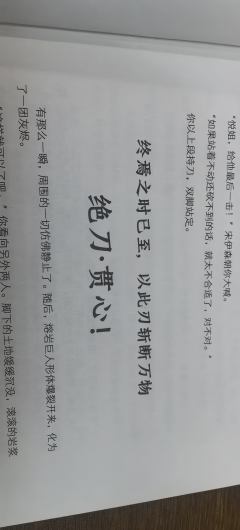 “悦姐，给他最后一击！”宋伊森朝你大喊。
“如果站着不动还砍不到的话，就太不合适了，对不对。”
你以上段持刀，双脚站定。
终焉之时已至，以此刃斩断万物
绝刀·贯心！
有那么一瞬，周围的一切仿佛静止了。随后，熔岩巨人形体爆裂开来，化为
了一团灰烬。
你看向另外两人。脚下的土地缓缓沉没，滚滚的岩浆